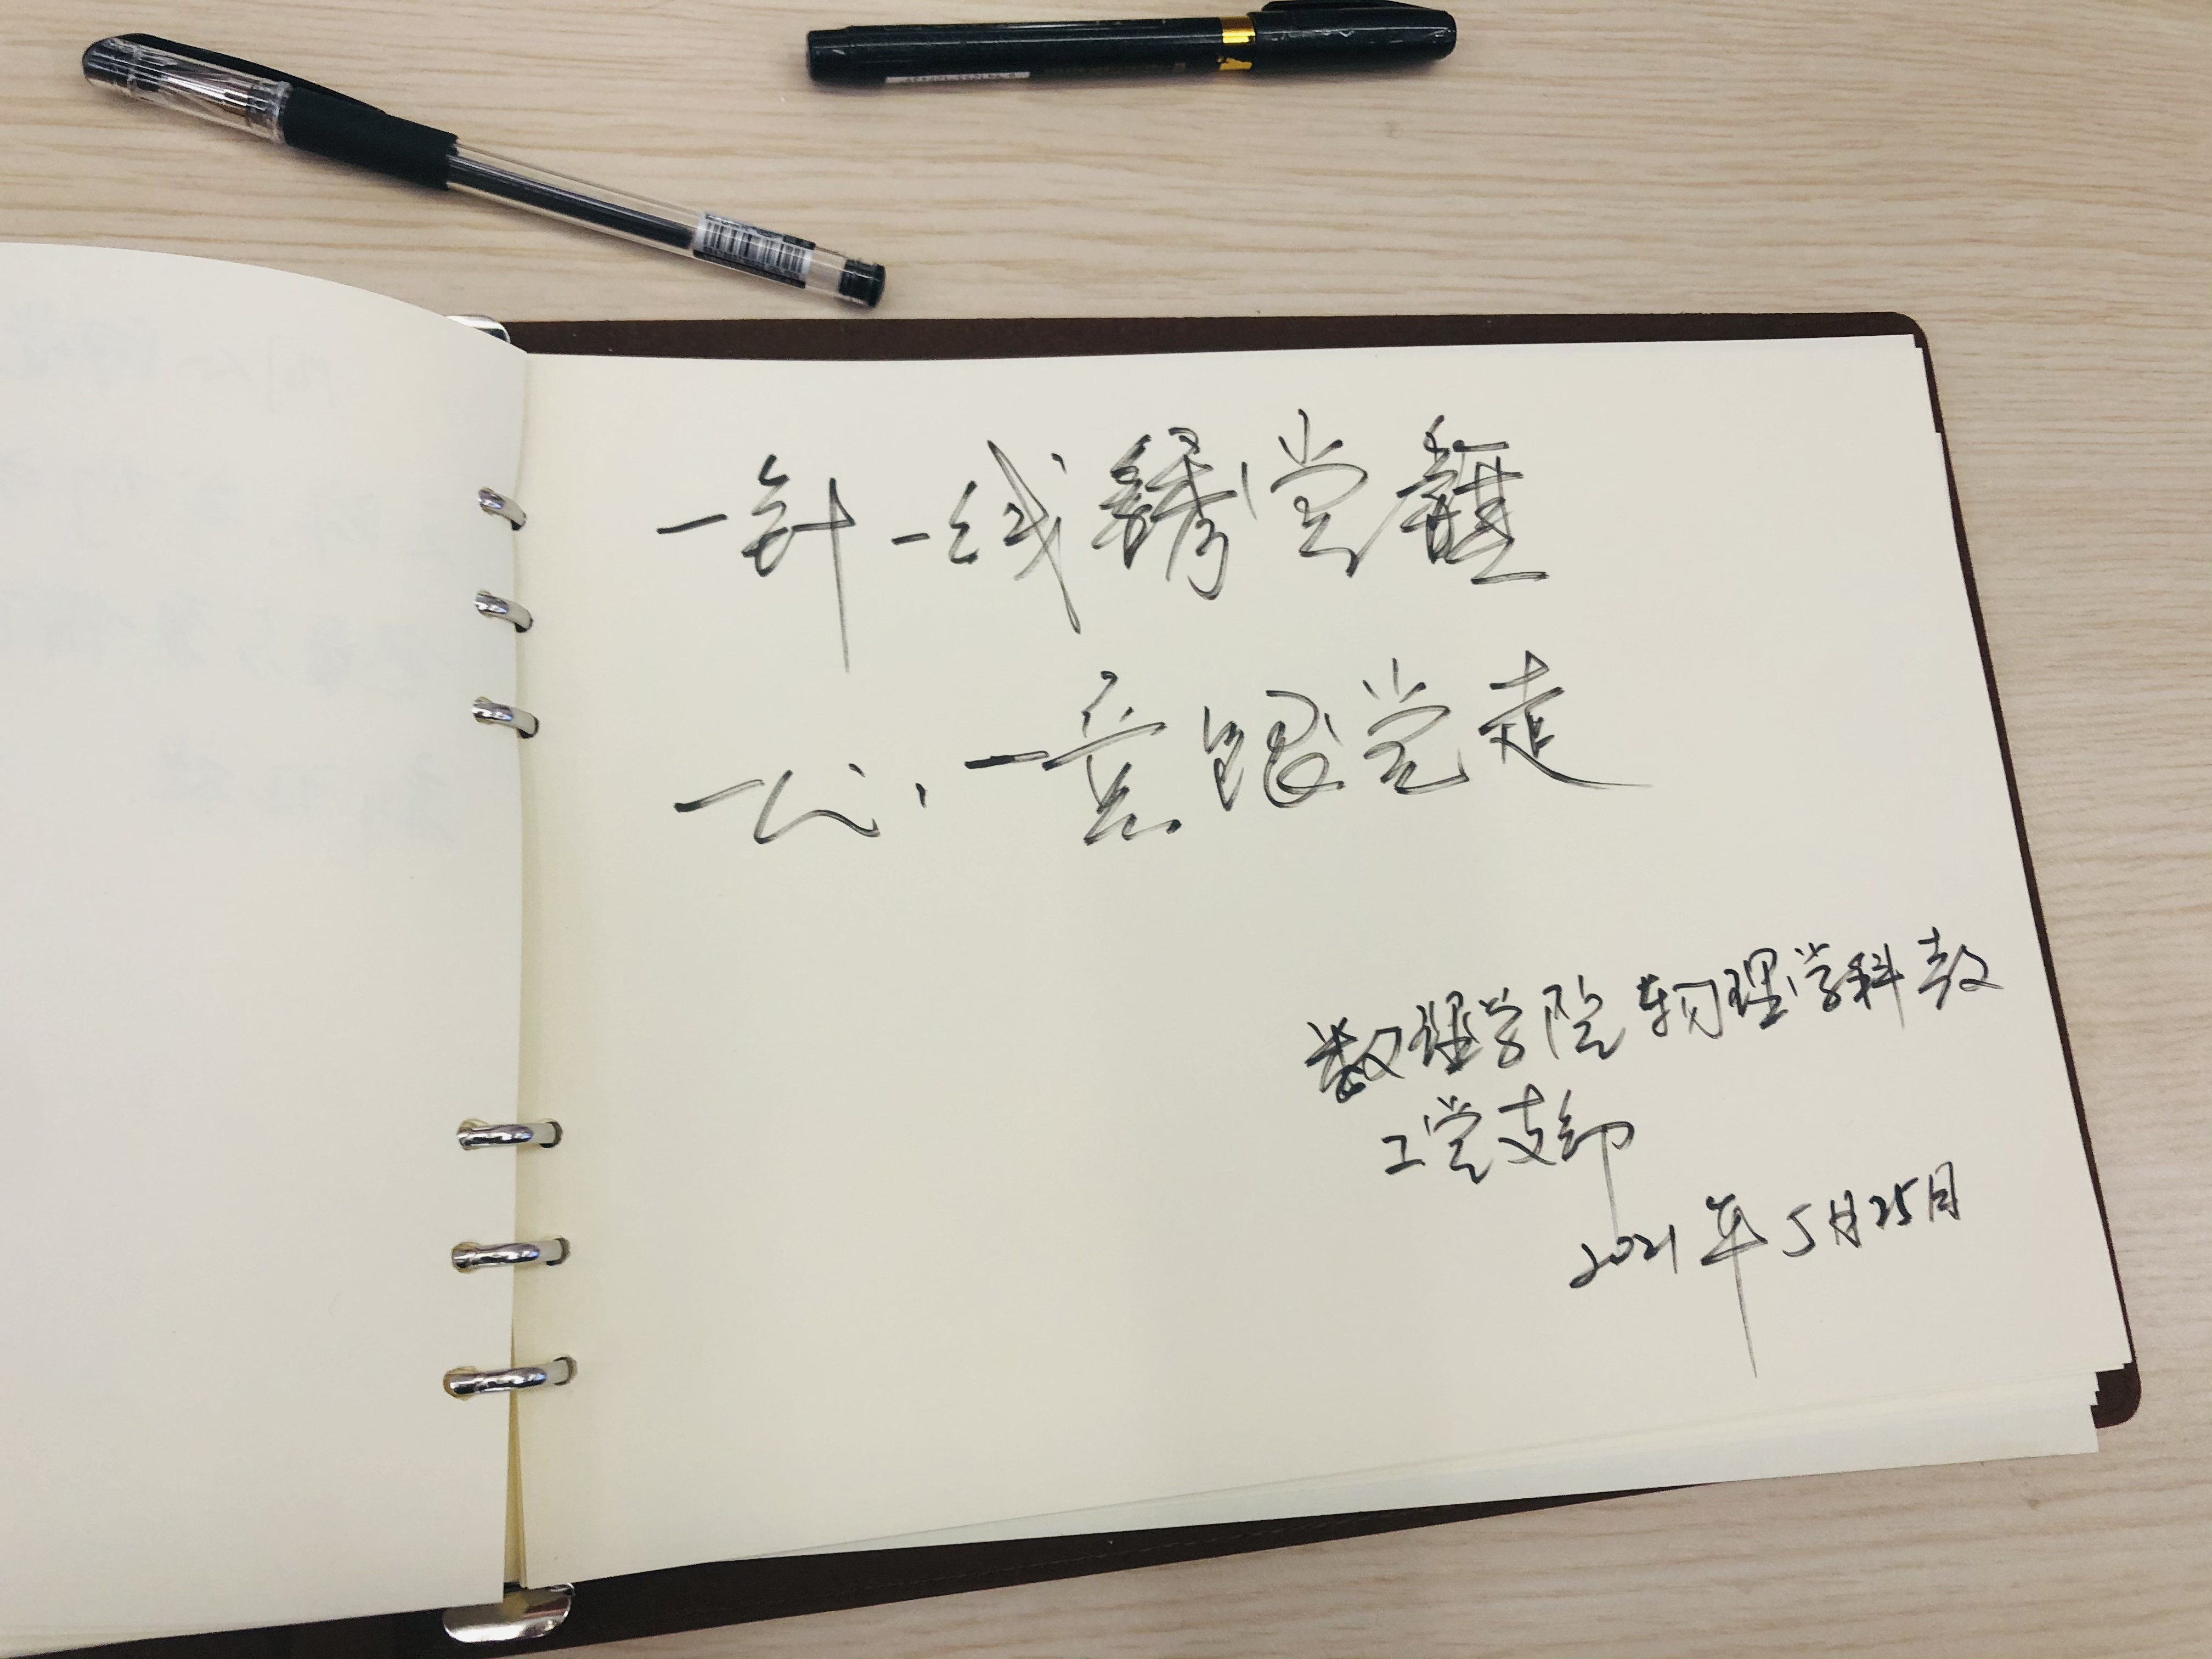 一针一线绣党旗
一心一意跟党走
数理学院物理学科教
工党支部
2021年5月25日